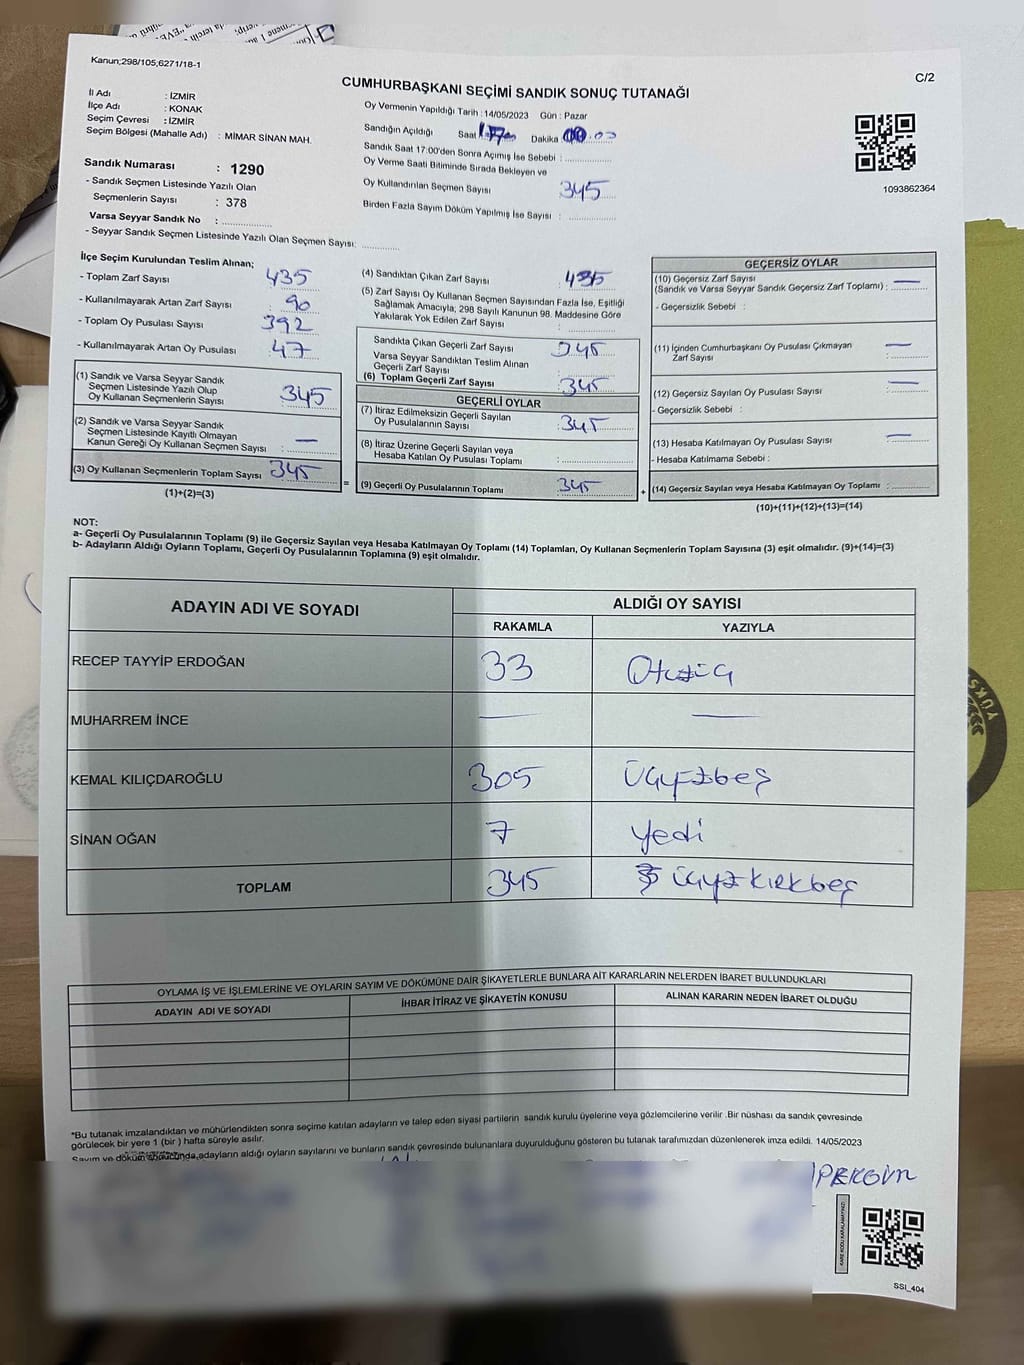 Kanun;298/105;6271/18-1
C/2
CUMHURBAŞKANI SEÇİMİ SANDIK SONUÇ TUTANAĞI
İl Adı : İZMİR
İlçe Adı : KONAK
Seçim Çevresi : İZMİR
Seçim Bölgesi (Mahalle Adı) : MİMAR SİNAN MAH.
Sandık Numarası : 1290
- Sandık Seçmen Listesinde Yazılı Olan
Seçmenlerin Sayısı : 378
Varsa Seyyar Sandık No :
- Seyyar Sandık Seçmen Listesinde Yazılı Olan Seçmen Sayısı:
Oy Vermenin Yapıldığı Tarih : 14/05/2023 Gün : Pazar
Sandığın Açıldığı Saat Dakika
Sandık Saat 17:00'den Sonra Açımış İse Sebebi :
Oy Verme Saati Bitiminde Sırada Bekleyen ve
Oy Kullandırılan Seçmen Sayısı 345
Birden Fazla Sayım Döküm Yapılmış İse Sayısı :
1093862364
İlçe Seçim Kurulundan Teslim Alınan;
- Toplam Zarf Sayısı 435
- Kullanılmayarak Artan Zarf Sayısı : 90
- Toplam Oy Pusulası Sayısı 392
- Kullanılmayarak Artan Oy Pusulası : 47
(1) Sandık ve Varsa Seyyar Sandık
Seçmen Listesinde Yazılı Olup
Oy Kullanan Seçmenlerin Sayısı : 345
(2) Sandık ve Varsa Seyyar Sandık
Seçmen Listesinde Kayıtlı Olmayan
Kanun Gereği Oy Kullanan Seçmen Sayısı : —
(3) Oy Kullanan Seçmenlerin Toplam Sayısı 345
(1)+(2)=(3)
=
(4) Sandıktan Çıkan Zarf Sayısı : 435
(5) Zarf Sayısı Oy Kullanan Seçmen Sayısından Fazla İse, Eşitliği
Sağlamak Amacıyla; 298 Sayılı Kanunun 98. Maddesine Göre
Yakılarak Yok Edilen Zarf Sayısı :
Sandıkta Çıkan Geçerli Zarf Sayısı 345
Varsa Seyyar Sandıktan Teslim Alınan
Geçerli Zarf Sayısı :
(6) Toplam Geçerli Zarf Sayısı 345
GEÇERLİ OYLAR
(7) İtiraz Edilmeksizin Geçerli Sayılan
Oy Pusulalarının Sayısı : 345
(8) İtiraz Üzerine Geçerli Sayılan veya
Hesaba Katılan Oy Pusulası Toplamı :
(9) Geçerli Oy Pusulalarının Toplamı 345
+
GEÇERSİZ OYLAR
(10) Geçersiz Zarf Sayısı
(Sandık ve Varsa Seyyar Sandık Geçersiz Zarf Toplamı) : —
- Geçersizlik Sebebi :
(11) İçinden Cumhurbaşkanı Oy Pusulası Çıkmayan
Zarf Sayısı : —
(12) Geçersiz Sayılan Oy Pusulası Sayısı : —
- Geçersizlik Sebebi :
(13) Hesaba Katılmayan Oy Pusulası Sayısı : —
- Hesaba Katılmama Sebebi :
(14) Geçersiz Sayılan veya Hesaba Katılmayan Oy Toplamı :
(10)+(11)+(12)+(13)=(14)
NOT:
a- Geçerli Oy Pusulalarının Toplamı (9) ile Geçersiz Sayılan veya Hesaba Katılmayan Oy Toplamı (14) Toplamları, Oy Kullanan Seçmenlerin Toplam Sayısına (3) eşit olmalıdır. (9)+(14)=(3)
b- Adayların Aldığı Oyların Toplamı, Geçerli Oy Pusulalarının Toplamına (9) eşit olmalıdır.
ADAYIN ADI VE SOYADI ALDIĞI OY SAYISI
RAKAMLA YAZIYLA
RECEP TAYYİP ERDOĞAN 33 Otuzüç
MUHARREM İNCE — —
KEMAL KILIÇDAROĞLU 305 Üçyüzbeş
SİNAN OĞAN 7 yedi
TOPLAM 345 üçyüzkırkbeş
OYLAMA İŞ VE İŞLEMLERİNE VE OYLARIN SAYIM VE DÖKÜMÜNE DAİR ŞİKAYETLERLE BUNLARA AİT KARARLARIN NELERDEN İBARET BULUNDUKLARI
ADAYIN ADI VE SOYADI İHBAR İTİRAZ VE ŞİKAYETİN KONUSU ALINAN KARARIN NEDEN İBARET OLDUĞU
*Bu tutanak imzalandıktan ve mühürlendikten sonra seçime katılan adayların ve talep eden siyasi partilerin sandık kurulu üyelerine veya gözlemcilerine verilir .Bir nüshası da sandık çevresinde
görülecek bir yere 1 (bir ) hafta süreyle asılır.
Sayım ve döküm sonucunda,adayların aldığı oyların sayılarını ve bunların sandık çevresinde bulunanlara duyurulduğunu gösteren bu tutanak tarafımızdan düzenlenerek imza edildi. 14/05/2023
KARE KODU KARALAMAYINIZ!
SSI_404